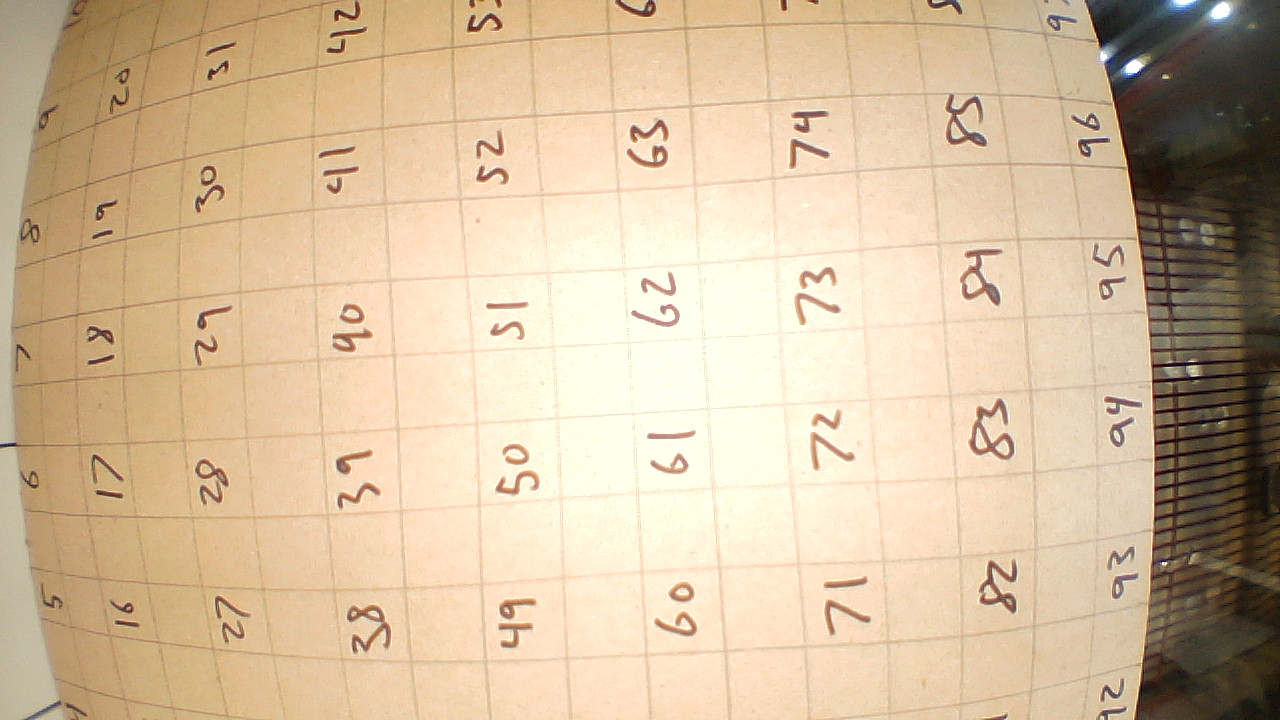 5 6 7 8 9
16 17 18 19 20
27 28 29 30 31
38 39 90 41 42
49 50 51 52
60 61 62 63
71 72 73 74
82 83 84 85
92 93 94 95 96